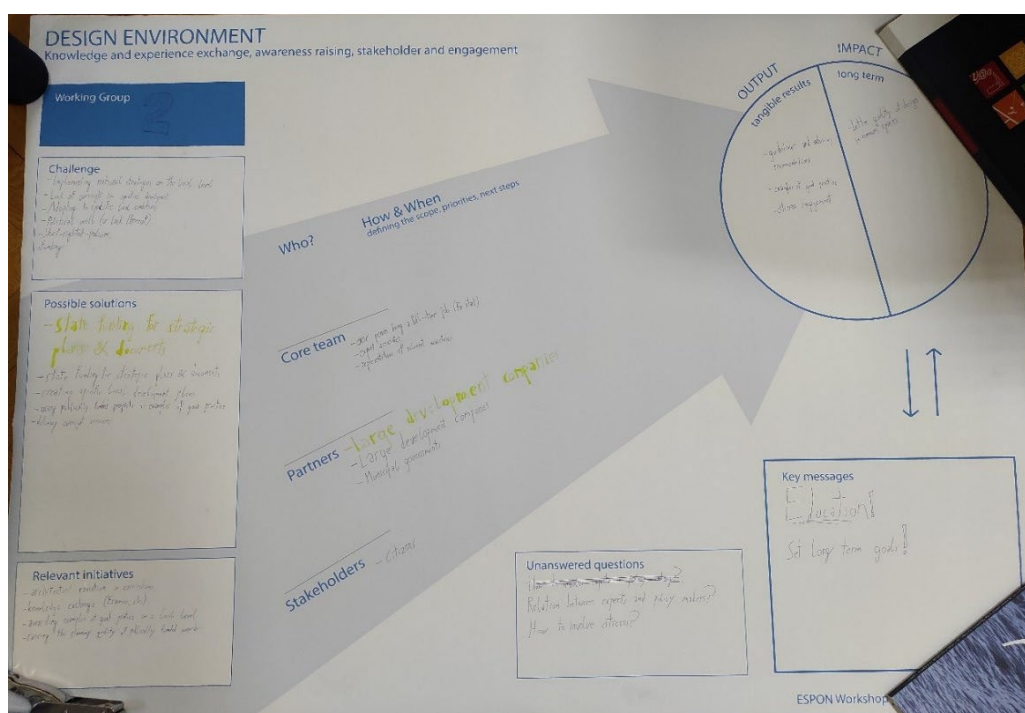 DESIGN ENVIRONMENT
Knowledge and experience exchange, awareness raising, stakeholder and engagement
Working Group
2
Challenge
- Implementing national strategies on the local level
- Lack of
- Adapting to specific local
- (threat)
- Short-sighted
- Funding
Possible solutions
- State funding for strategic
plans & documents
- state funding for strategic plans & documents
- specific (local) development plans
- using publically funded projects as examples of good practice
- defining concept
Relevant initiatives
- architectural
- knowledge exchange
- awarding examples of good practice on a local level
- the planning quality of publically funded
Who?
How & When
defining the scope, priorities, next steps
Core team
- one person being a full-time job
- expert
- representatives of relevant
Partners
- Large development companies
- Large development companies
- Municipal governments
Stakeholders
- Citizens
OUTPUT
tangible results
- guidelines and
- examples of good practice
- citizen engagement
IMPACT
long term
- better quality of design
Key messages
Education!
Set long term goals!
Unanswered questions
Relation between experts and policy makers?
How to involve citizens?
ESPON Workshop